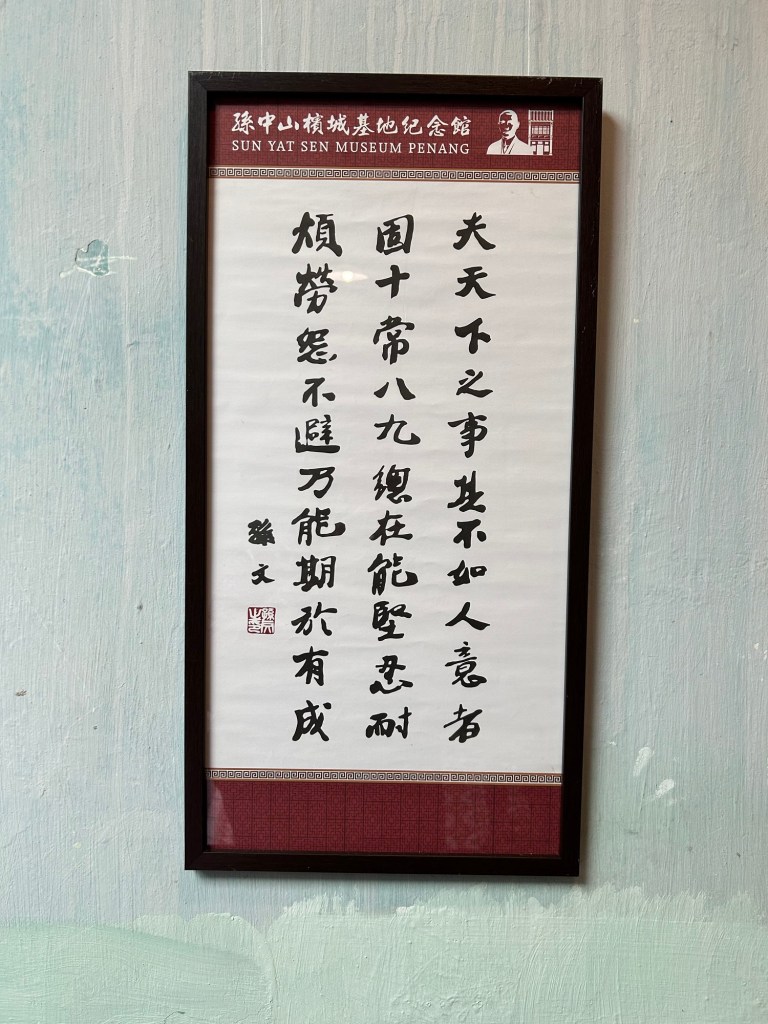 孫中山檳城基地纪念館
SUN YAT SEN MUSEUM PENANG
夫天下之事其不如人意者
固十常八九總在能堅忍耐
煩勞怨不避乃能期於有成
孫文